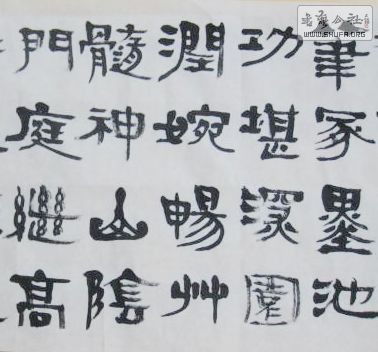 書法公社
WWW.SHUFA.ORG
筆冢墨池
功堪深園
潤婉暢艸
髓神山陰
門庭繼高